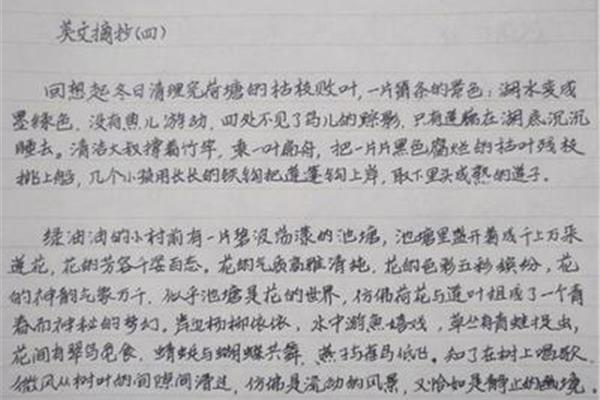 美文摘抄(四)
回想起冬日清理完荷塘的枯枝败叶,一片萧条的景色:湖水变成
墨绿色,没有鱼儿游动,四处不见了鸟儿的踪影,只有莲藕在湖底沉沉
睡去。清洁大叔撑着竹竿,乘一叶扁舟,把一片片黑色腐烂的枯叶残枝
挑上船,几个小孩用长长的铁钩把莲蓬钩上岸,取下里头成熟的莲子。
绿油油的小村前有一片碧波荡漾的池塘,池塘里盛开着成千上万朵
莲花,花的芳容千姿百态。花的气质高雅清纯,花的色彩五彩缤纷,花
的神韵气象万千,似乎池塘是花的世界,仿佛荷花与莲叶组成了一个青
春而神秘的梦幻。岸边杨柳依依,水中游鱼嬉戏,草丛有青蛙捉虫,
花间有翠鸟觅食,蜻蜓与蝴蝶共舞,燕子与喜鸟低飞。知了在树上唱歌,
微风从树叶的间隙间滑过,仿佛是流动的风景,又恰如是静止的幽境。